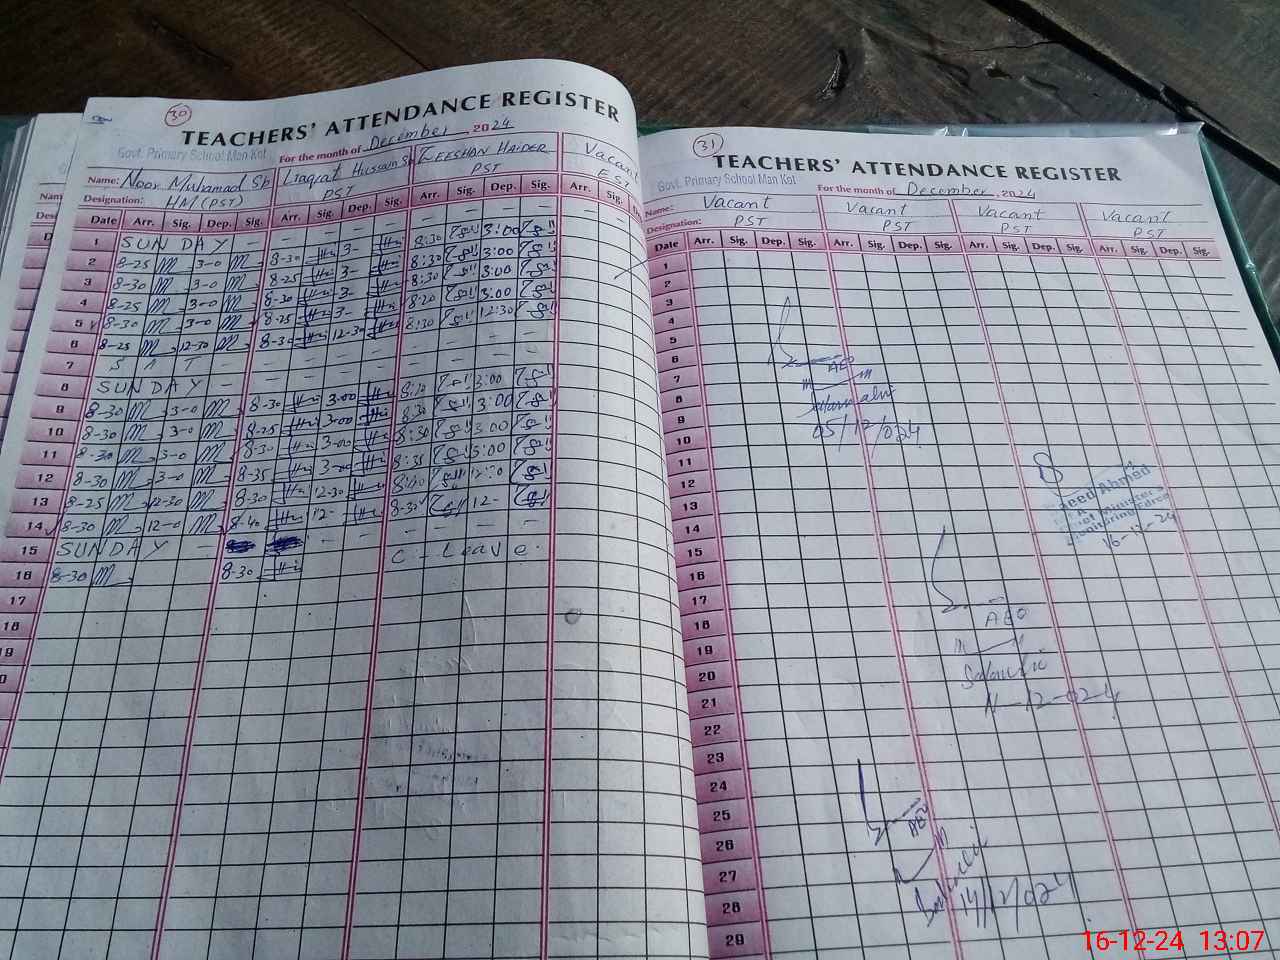 30
TEACHERS' ATTENDANCE REGISTER
Govt. Primary School Man Kot
For the month of December, 2024
Name: Noor Muhamad Sb Liaqat Hussain Sb ZEESHAN HAIDER Vacant
Designation: HM (PST) PST PST EST
Date Arr. Sig. Dep. Sig. Arr. Sig. Dep. Sig. Arr. Sig. Dep. Sig. Arr. Sig.
1 SUNDAY - - - - - - - - -
2 8-25 3-0 8-30 3- 8:30 3:00
3 8-30 3-0 8-25 3- 8:30 3:00
4 8-25 3-0 8-30 3- 8:30 3:00
5 8-30 3-0 8-25 3- 8:20 3:00
6 8-25 12-30 8-30 12-30 8:30 12:30
7 S A T - - - - - - - - -
8 SUNDAY - - - - - - - - -
9 8-30 3-0 8-30 3-00 3:00
10 8-30 3-0 8-25 3-00 8:30 3:00
11 8-30 3-0 8-30 3-00 8:30 3:00
12 8-30 3-0 8-35 3-00 8:35 3:00
13 8-25 12-30 8-30 12-30
14 8-30 12-0 8-40 12- 8-35 12-
15 SUNDAY - - - - - - -
16 8-30 8-30 C - Leave.
17
18
19
31
TEACHERS' ATTENDANCE REGISTER
Govt. Primary School Man Kot
For the month of December, 2024
Name: Vacant Vacant Vacant Vacant
Designation: PST PST PST PST
Date Arr. Sig. Dep. Sig. Arr. Sig. Dep. Sig. Arr. Sig. Dep. Sig. Arr. Sig. Dep. Sig.
1
2
3
4
5
6
AEO
7
8
9
05/12/024
10
11
12
Saeed Ahmed
13
14
16-12-24
15
16
17
AEO
18
19
20
21
11-12-024
22
23
24
25
AEO
26
27
28
14/12/024
29
16-12-24 13:07